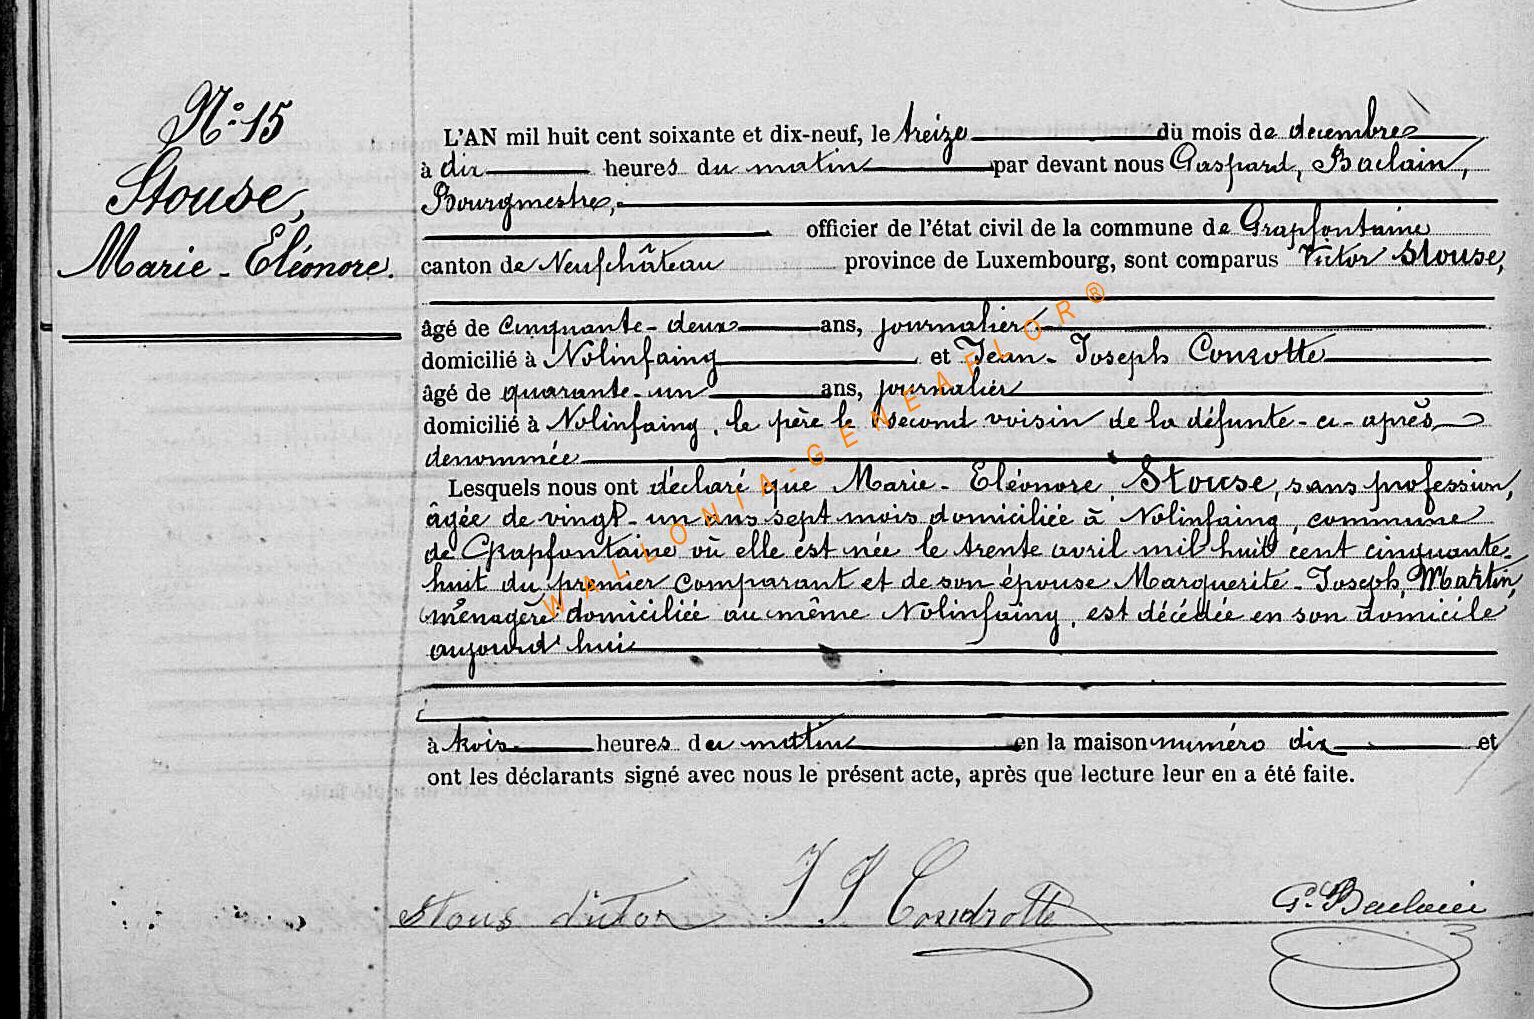 N° 15
Stouse,
Marie - Eléonore.
L'AN mil huit cent soixante et dix-neuf, le treize du mois de décembre
à dix heures du matin par devant nous Gaspard, Baclain,
Bourgmestre,
officier de l'état civil de la commune de Grapfontaine
canton de Neufchâteau province de Luxembourg, sont comparus Victor Stouse,
âgé de cinquante - deux ans, journalier
domicilié à Nolinfaing et Jean - Joseph Conrotte
âgé de quarante - un ans, journalier
domicilié à Nolinfaing, le père le second voisin de la défunte - ci - après
denommée
Lesquels nous ont déclaré que Marie - Eléonore, Stouse, sans profession,
âgée de vingt - un ans sept mois domiciliée à Nolinfaing, commune
de Grapfontaine où elle est née le trente avril mil huit cent cinquante -
huit du premier comparant et de son épouse Marguerite - Joseph, Martin,
ménagère domiciliée au même Nolinfaing, est décédée en son domicile
aujourd'hui
à trois heures du matin en la maison numéro dix et
ont les déclarants signé avec nous le présent acte, après que lecture leur en a été faite.
Stous J J G. Baclain
WALLONIA-GENEAFLOR®